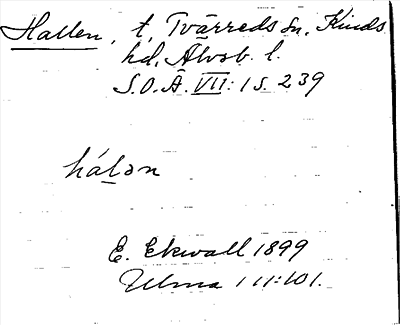 Hallen, t, Tvärreds sn. Kinds
hd, Älvsb. l.
S.O.Ä. VII: 1 s. 239
hálən
E. Ekwall 1899
Ulma 111:101.